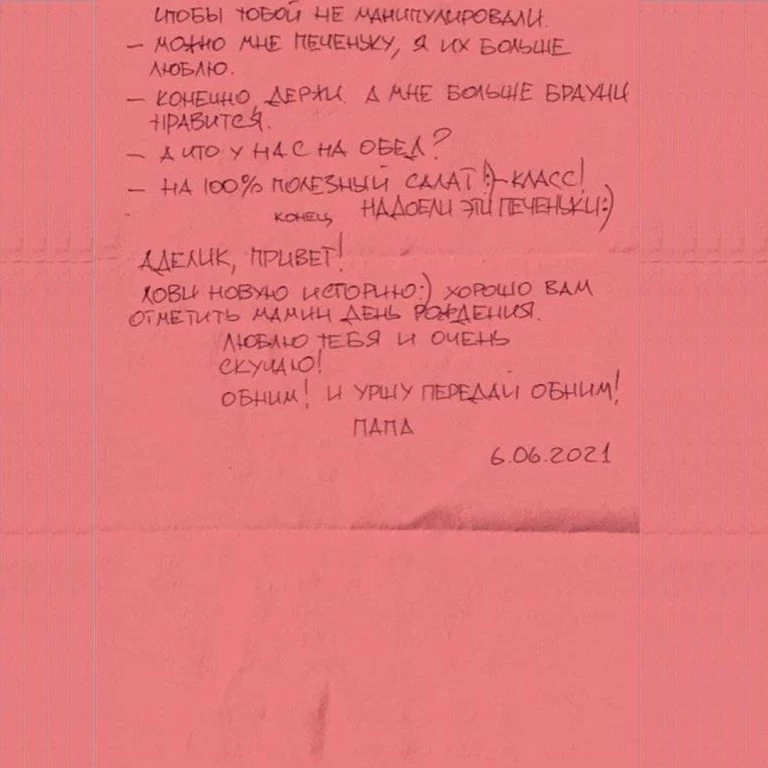 чтобы тобой не манипулировали.
– можно мне печеньку, я их больше
люблю.
– конечно, держи. А мне больше брауни
нравится.
– А что у нас на обед?
– на 100% полезный салат :) – класс!
конец надоели эти печеньки :)
Аделик, привет!
Лови новую историю :) хорошо вам
отметить мамин день рождения.
Люблю тебя и очень
скучаю!
Обним! и Уршу передай обним!
Папа
6.06.2021